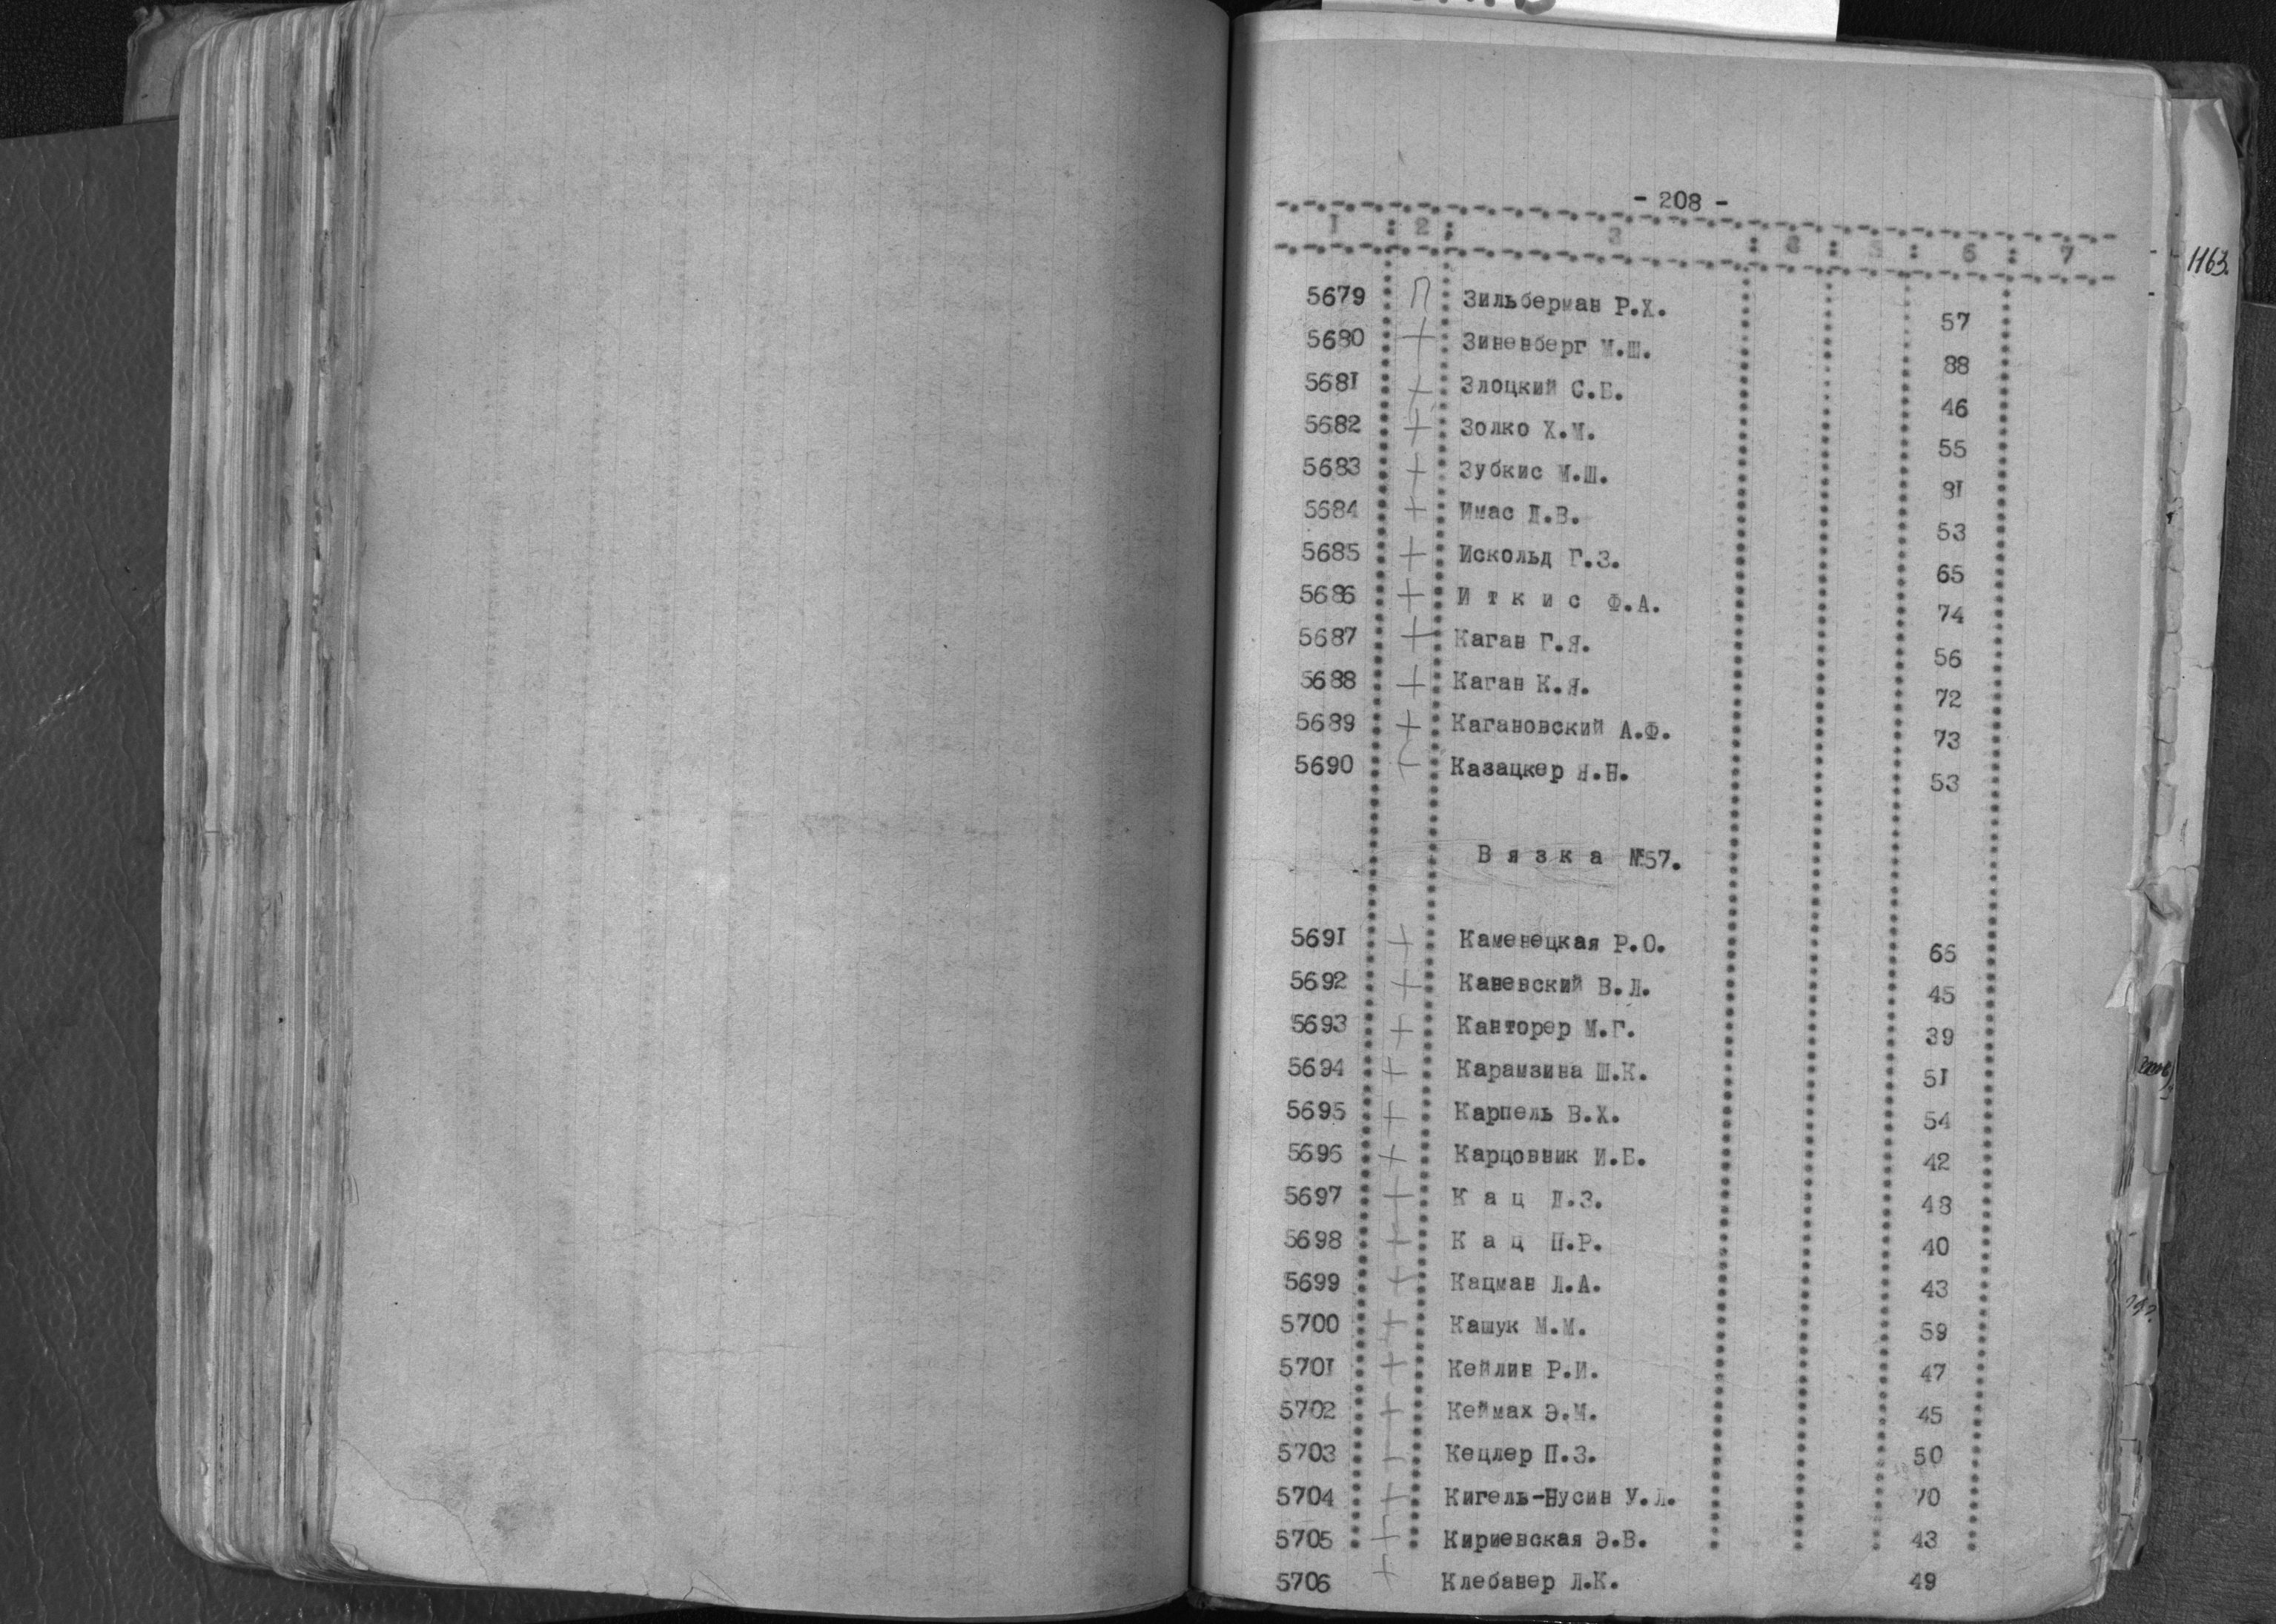 - 208 -
1 : 2 : 3 : 4 : 5 : 6 : 7
1163.
5679 П Зильберман Р.Х. 57
5680 + Зиненберг М.Ш. 88
5681 + Злоцкий С.Б. 46
5682 + Золко Х.М. 55
5683 + Зубкис М.Ш. 81
5684 + Имас Д.В. 53
5685 + Искольд Г.З. 65
5686 + И т к и с Ф.А. 74
5687 + Каган Г.Я. 56
5688 + Каган К.Я. 72
5689 + Кагановский А.Ф. 73
5690 + Казацкер Я.Н. 53
В я з к а №57.
5691 + Каменецкая Р.О. 66
5692 + Каневский В.Л. 45
5693 + Канторер М.Г. 39
5694 + Карамзина Ш.К. 51
5695 + Карпель В.Х. 54
5696 + Карцовник И.Б. 42
5697 + К а ц Д.З. 48
5698 + К а ц П.Р. 40
5699 + Кацман Л.А. 43
5700 + Кашук М.М. 59
5701 + Кейлин Р.И. 47
5702 + Кеймах Э.М. 45
5703 + Кецлер П.З. 50
5704 + Кигель-Нусин У. 70
5705 + Кириевская Э.В. 43
5706 + Клебанер Л.К. 49